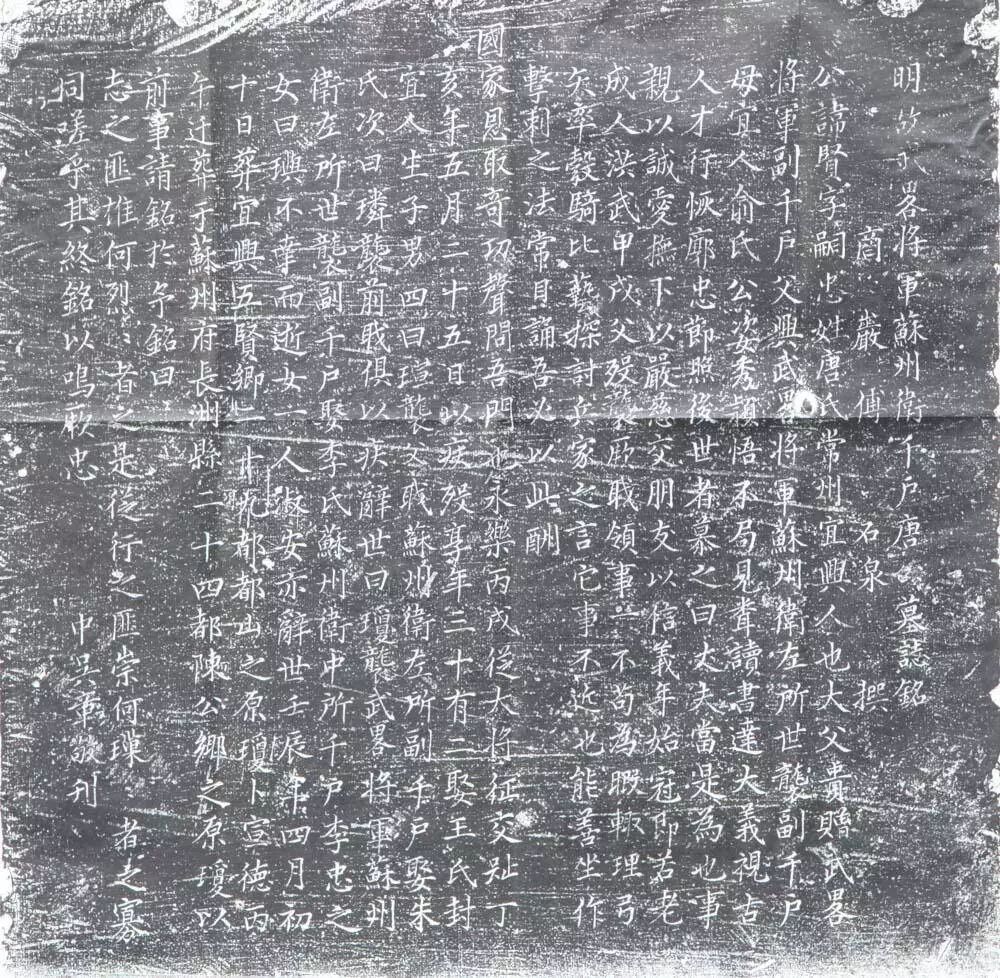 明故武畧將軍蘇州衛千戶唐公墓誌銘
商巖傅石泉撰
公諱賢字嗣忠姓唐氏常州宜興人也大父貴贈武畧
將軍副千戶父興武畧將軍蘇州衛左所世襲副千戶
母宜人俞氏公姿秀穎悟不局見聳讀書達大義視古
人才行恢廓忠節照後世者慕之曰大夫當是為也事
親以誠愛撫下以嚴慈交朋友以信義年始冠即若老
成人洪武甲戌父歿襲厥職領事一不苟為暇輒理弓
矢率彀騎比藝探討兵家之言它事不近也能善坐作
擊刺之法常目誦吾必以此酬
國家恩取奇功聲問吾門也永樂丙戌從大將征交趾丁
亥年五月二十五日以疾歿享年三十有二娶王氏封
宜人生子男四曰瑄襲父職蘇州衛左所副千戶娶朱
氏次曰璘襲前職俱以疾辭世曰瓊襲武畧將軍蘇州
衛左所世襲副千戶娶李氏蘇州衛中所千戶李忠之
女曰璵不幸而逝女一人淑安亦辭世壬辰年四月初
十日葬宜興五賢鄉二十九都都山之原瓊卜宣德丙
午迁葬于蘇州府長洲縣二十四都陳公鄉之原瓊以
前事請銘於予銘曰
志之匪惟何烈烈者之是從行之匪崇何璞者之寡
同嗟乎其終銘以鳴厥忠
中吳章敬刊